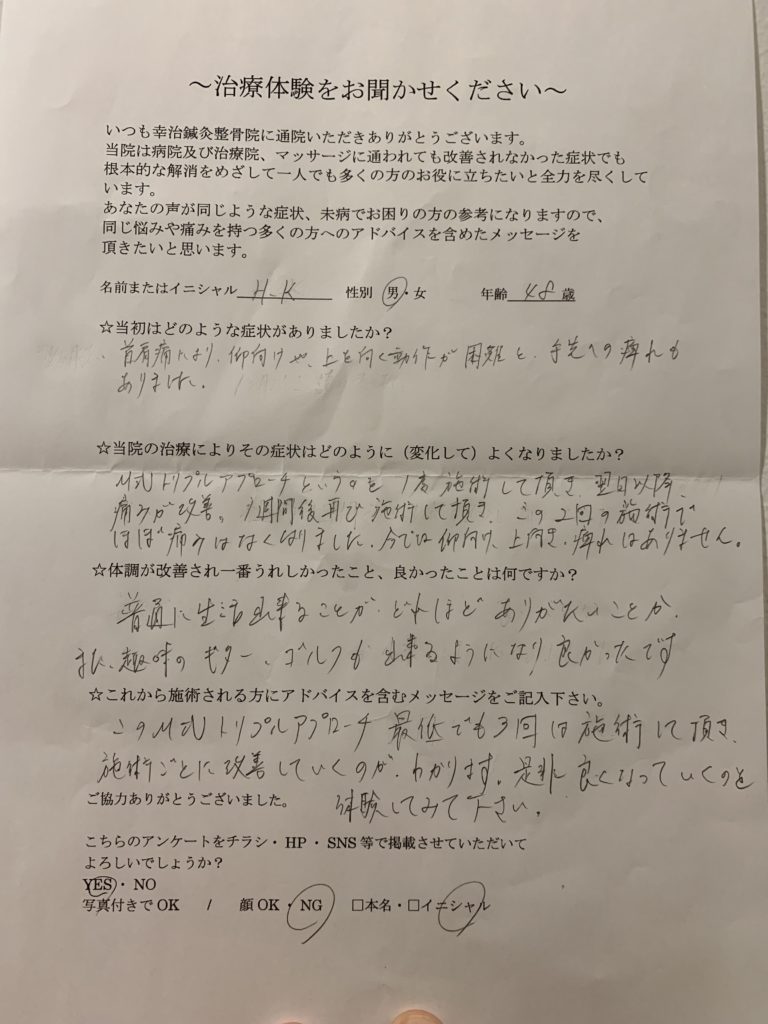 ～治療体験をお聞かせください～
いつも幸治鍼灸整骨院に通院いただきありがとうございます。
当院は病院及び治療院、マッサージに通われても改善されなかった症状でも
根本的な解消をめざして一人でも多くの方のお役に立ちたいと全力を尽くして
います。
あなたの声が同じような症状、未病でお困りの方の参考になりますので、
同じ悩みや痛みを持つ多くの方へのアドバイスを含めたメッセージを
頂きたいと思います。
名前またはイニシャル H.K 性別 男・女 年齢 48 歳
☆当初はどのような症状がありましたか？
首肩痛により、仰向けや、上を向く動作が困難と、手先への痺れも
ありました。
☆当院の治療によりその症状はどのように（変化して）よくなりましたか？
M式トリプルアプローチというのを1度施術して頂き、翌日以降、
痛みが改善。1週間後再び施術して頂き、この2回の施術で
ほぼ痛みはなくなりました。今では仰向け、上向き、痺れはありません。
☆体調が改善され一番うれしかったこと、良かったことは何ですか？
普通に生活出来ることが、どれほどありがたいことか、
また、趣味のギター、ゴルフも出来るようになり良かったです
☆これから施術される方にアドバイスを含むメッセージをご記入下さい。
このM式トリプルアプローチ最低でも3回は施術して頂き、
施術ごとに改善していくのが、わかります。是非良くなっていくのを
体験してみて下さい。
ご協力ありがとうございました。
こちらのアンケートをチラシ・HP・SNS等で掲載させていただいて
よろしいでしょうか？
YES・NO
写真付きでOK / 顔OK・NG □本名・□イニシャル